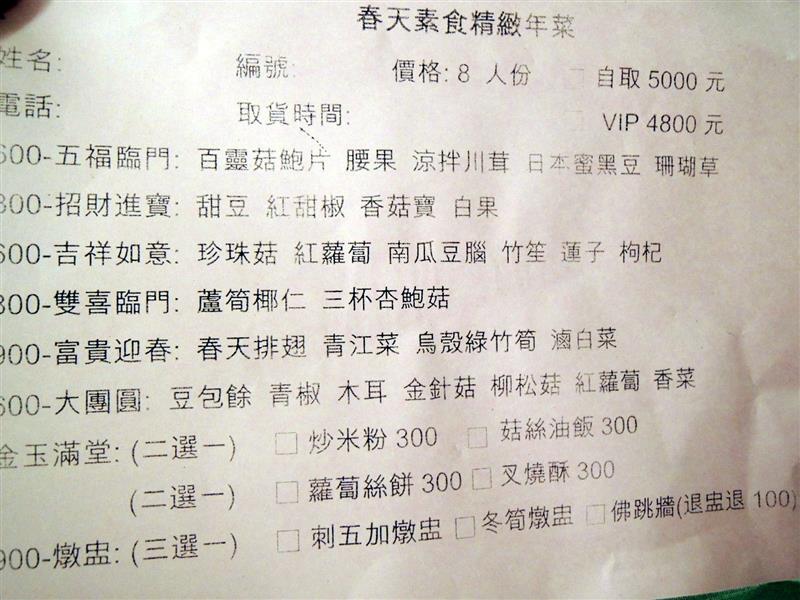 春天素食精緻年菜
姓名: 編號: 價格: 8 人份 □ 自取 5000 元
電話: 取貨時間: □ VIP 4800 元
600-五福臨門: 百靈菇鮑片 腰果 涼拌川茸 日本蜜黑豆 珊瑚草
800-招財進寶: 甜豆 紅甜椒 香菇寶 白果
600-吉祥如意: 珍珠菇 紅蘿蔔 南瓜豆腦 竹笙 蓮子 枸杞
800-雙喜臨門: 蘆筍椰仁 三杯杏鮑菇
900-富貴迎春: 春天排翅 青江菜 烏殼綠竹筍 滷白菜
600-大團圓: 豆包餘 青椒 木耳 金針菇 柳松菇 紅蘿蔔 香菜
金玉滿堂: (二選一) □ 炒米粉 300 □ 菇絲油飯 300
(二選一) □ 蘿蔔絲餅 300 □ 叉燒酥 300
900-燉盅: (三選一) □ 刺五加燉盅 □ 冬筍燉盅 □ 佛跳牆(退盅退 100)